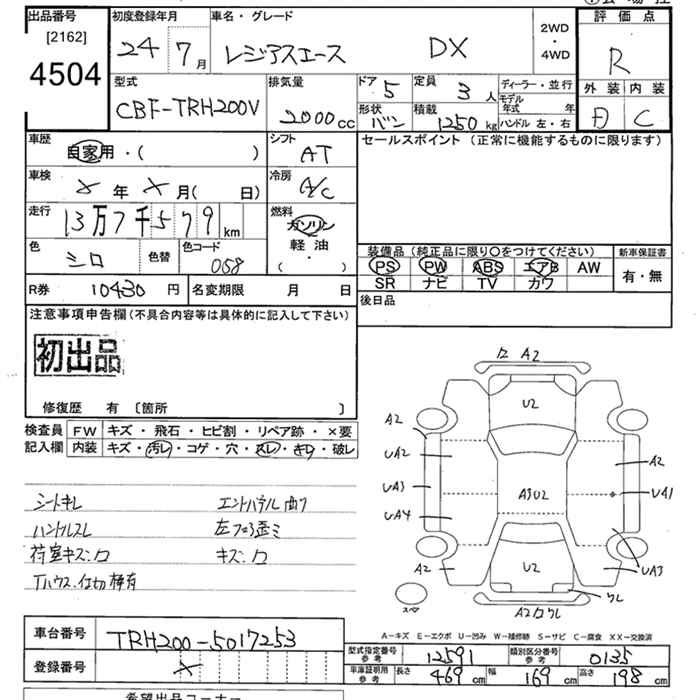 出品番号 初度登録年月 車名・グレード 評価点
[2162] 24年7月 レジアスエース DX 2WD・4WD R
4504
型式 排気量 ドア 5 定員 3人 ディーラー・並行 外装 内装
CBF-TRH200V 2000cc 形状 バン 積載 1250kg モデル年式 年 ハンドル 左・右 D C
車歴 自家用・( ) シフト AT セールスポイント (正常に機能するものに限ります)
車検 年 月( 日) 冷房 A/C
走行 13万7千579km 燃料 ガソリン 軽油 ( ・ )
色 シロ 色替 色コード 058 装備品 (純正品に限り○をつけてください) 新車保証書
PS PW ABS エアB AW 有・無
SR ナビ TV カワ
R券 10430円 名変期限 月 日 後日品
注意事項申告欄(不具合内容等は具体的に記入して下さい)
初出品
修復歴 有 〔箇所 〕
検査員 FW キズ・飛石・ヒビ割・リペア跡・×要
記入欄 内装 キズ・汚レ・コゲ・穴・スレ・キレ・破レ
シートキレ エントパネル曲り
ハンドルスレ
荷室キズ・ワ キズ・ワ
A2
U2
A2 UA2 UA3 UA4 A2
A3U2
A2 UA1 UA3
U2
ワレ
スペ
A-キズ E-エクボ U-凹み W-補修跡 S-サビ C-腐食 XX-交換済
車台番号 TRH200-5017253
登録番号 ×
型式指定番号 参考 12591 類別区分番号 参考 0135
車庫証明用 参考 長さ 469cm 幅 169cm 高さ 198cm
希望出品コーナー